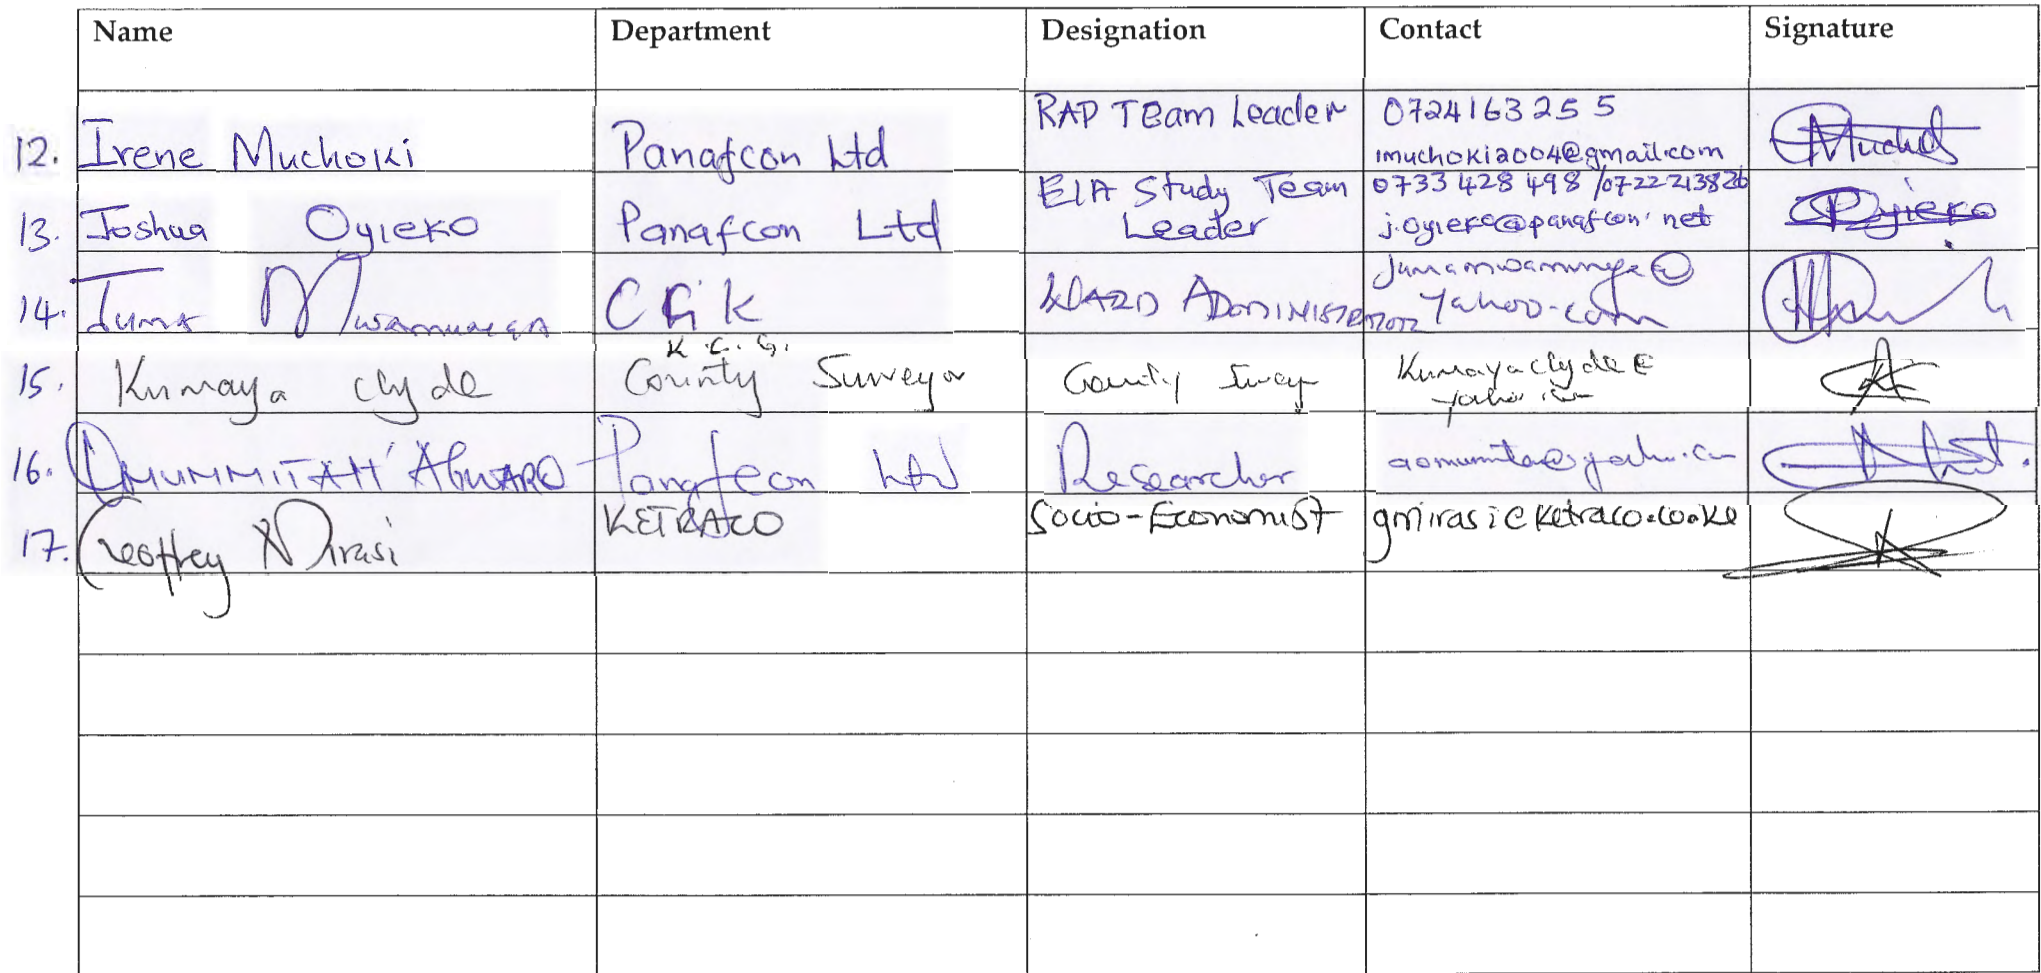 Name Department Designation Contact Signature
12. Irene Muchoki Panafcon Ltd RAP Team Leader 0724163255
imuchoki2004@gmail.com
13. Joshua Ogieko Panafcon Ltd EIA Study Team Leader 0733 428 498 /0722 213826
j.ogieko@panafcon.net
14. Juma CGK WARD ADMINISTRATOR
yahoo.com
15. Kumaya Clyde K.C.G.
County Surveyor County Kumayaclyde@
yahoo.com
16. OMUMMITAH ABWARO Panafcon Ltd Researcher
17. Geoffrey Mirasi KETRACO Socio-Economist gmirasi@ketraco.co.ke